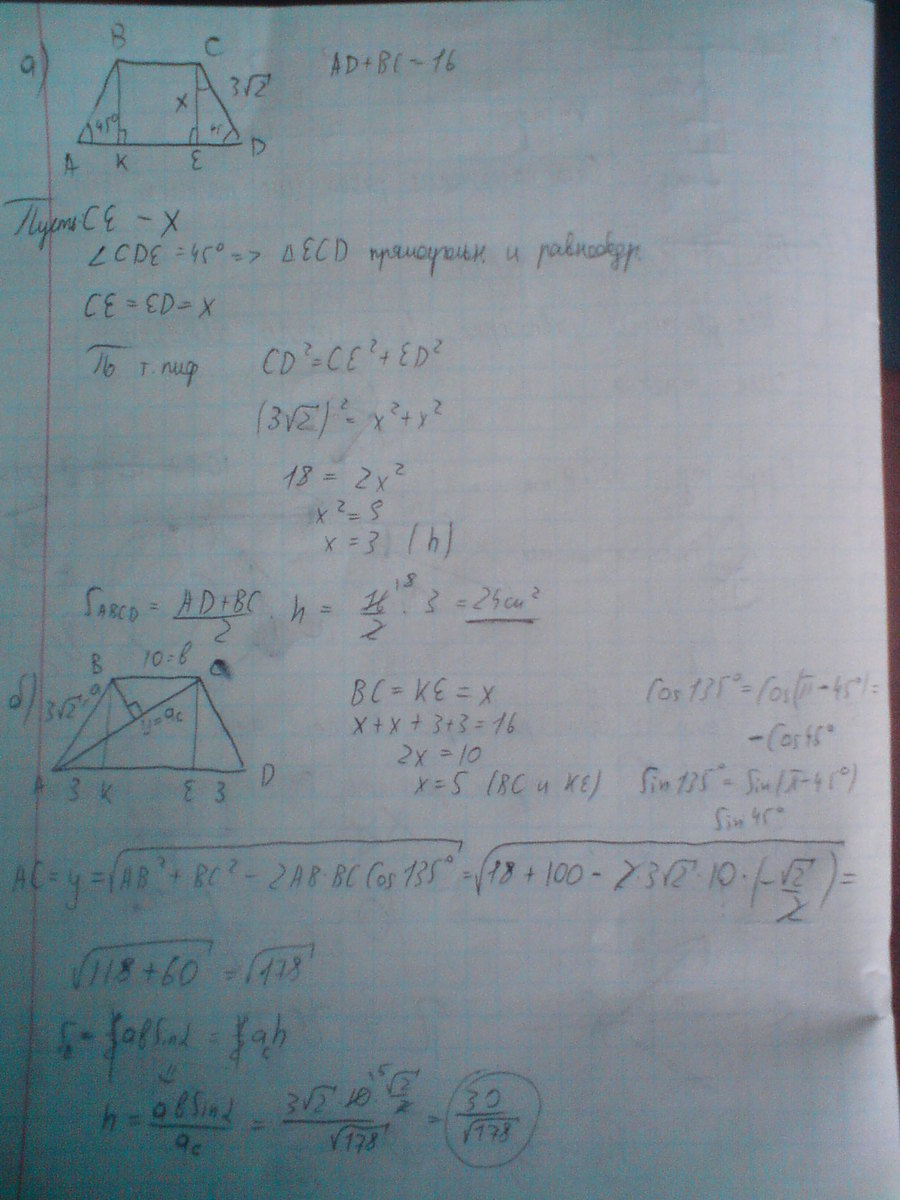 а)
B C
3√2
AD+BC - 16
X
45° 45
A K E D
Пусть CE - X
∠CDE = 45° => ΔECD прямоугольн. и равнобедр.
CE = ED = X
По т. пиф CD² = CE² + ED²
(3√2)² = x² + x²
18 = 2x²
x² = 9
x = 3 (h)
S ABCD = (AD+BC)/2 · h = 16/2 · 3 = 24 см²
8
б)
B 10=в
3√2
y=ac
A 3 K E 3 D
BC = KE = x
x + x + 3+3 = 16
2x = 10
x = 5 (BC и KE)
Cos 135° = Cos(π - 45°) =
- Cos 45°
Sin 135° = Sin(π - 45°)
Sin 45°
AC = y = √(AB² + BC² - 2AB·BC Cos 135°) = √(18 + 100 - 2·3√2·10·(-√2/2)) =
√(118 + 60) = √178
S = ½ aв Sin α = ½ ac h
h = (aв Sin α)/ac = (3√2 · 10 · √2/2)/√178 = 30/√178
5